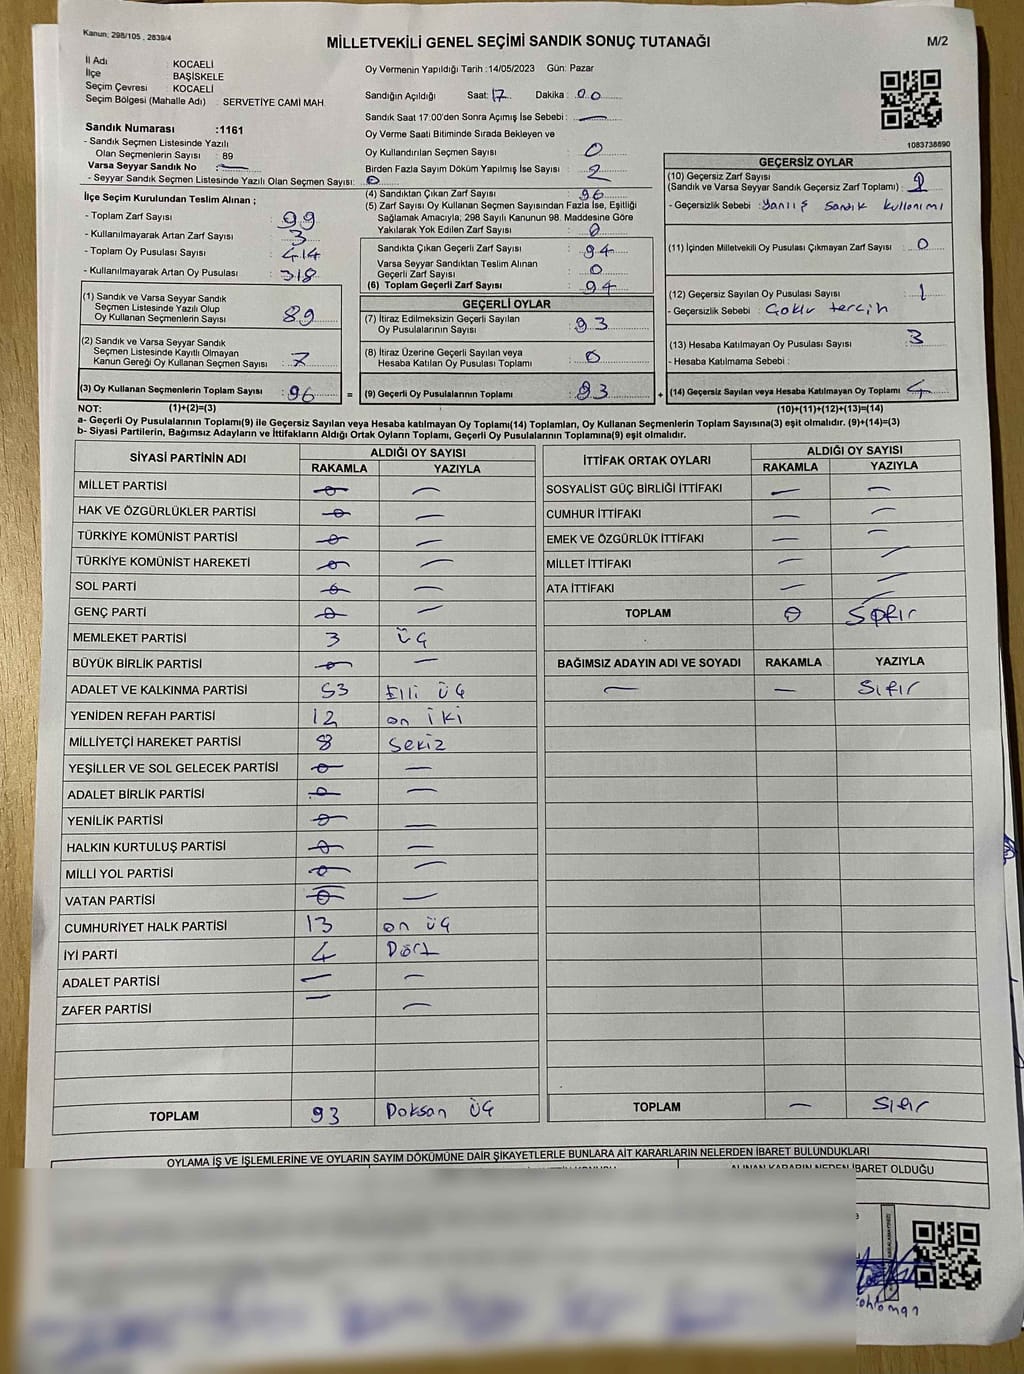 Kanun: 298/105 , 2839/4
MİLLETVEKİLİ GENEL SEÇİMİ SANDIK SONUÇ TUTANAĞI
M/2
İl Adı : KOCAELİ
İlçe : BAŞİSKELE
Seçim Çevresi : KOCAELİ
Seçim Bölgesi (Mahalle Adı) : SERVETİYE CAMİ MAH.
Sandık Numarası :1161
- Sandık Seçmen Listesinde Yazılı
Olan Seçmenlerin Sayısı : 89
Varsa Seyyar Sandık No : —
- Seyyar Sandık Seçmen Listesinde Yazılı Olan Seçmen Sayısı: 0
İlçe Seçim Kurulundan Teslim Alınan ;
- Toplam Zarf Sayısı : 99
- Kullanılmayarak Artan Zarf Sayısı : 3
- Toplam Oy Pusulası Sayısı : 414
- Kullanılmayarak Artan Oy Pusulası : 318
(1) Sandık ve Varsa Seyyar Sandık
Seçmen Listesinde Yazılı Olup
Oy Kullanan Seçmenlerin Sayısı : 89
(2) Sandık ve Varsa Seyyar Sandık
Seçmen Listesinde Kayıtlı Olmayan
Kanun Gereği Oy Kullanan Seçmen Sayısı : 7
(3) Oy Kullanan Seçmenlerin Toplam Sayısı : 96
Oy Vermenin Yapıldığı Tarih :14/05/2023 Gün: Pazar
Sandığın Açıldığı Saat: 17 Dakika : 00
Sandık Saat 17.00'den Sonra Açımış İse Sebebi : —
Oy Verme Saati Bitiminde Sırada Bekleyen ve
Oy Kullandırılan Seçmen Sayısı : 0
Birden Fazla Sayım Döküm Yapılmış İse Sayısı : 2
(4) Sandıktan Çıkan Zarf Sayısı : 96
(5) Zarf Sayısı Oy Kullanan Seçmen Sayısından Fazla İse, Eşitliği
Sağlamak Amacıyla; 298 Sayılı Kanunun 98. Maddesine Göre
Yakılarak Yok Edilen Zarf Sayısı : 0
Sandıkta Çıkan Geçerli Zarf Sayısı : 94
Varsa Seyyar Sandıktan Teslim Alınan
Geçerli Zarf Sayısı : 0
(6) Toplam Geçerli Zarf Sayısı : 94
GEÇERLİ OYLAR
(7) İtiraz Edilmeksizin Geçerli Sayılan
Oy Pusulalarının Sayısı : 93
(8) İtiraz Üzerine Geçerli Sayılan veya
Hesaba Katılan Oy Pusulası Toplamı : 0
= (9) Geçerli Oy Pusulalarının Toplamı : 93
1083738890
GEÇERSİZ OYLAR
(10) Geçersiz Zarf Sayısı
(Sandık ve Varsa Seyyar Sandık Geçersiz Zarf Toplamı) :
- Geçersizlik Sebebi : Yanlış Sandık kullonımı
(11) İçinden Milletvekili Oy Pusulası Çıkmayan Zarf Sayısı : 0
(12) Geçersiz Sayılan Oy Pusulası Sayısı : 1
- Geçersizlik Sebebi : Çoklu tercih
(13) Hesaba Katılmayan Oy Pusulası Sayısı : 3
- Hesaba Katılmama Sebebi :
+ (14) Geçersiz Sayılan veya Hesaba Katılmayan Oy Toplamı : 4
NOT: (1)+(2)=(3) (10)+(11)+(12)+(13)=(14)
a- Geçerli Oy Pusulalarının Toplamı(9) ile Geçersiz Sayılan veya Hesaba katılmayan Oy Toplamı(14) Toplamları, Oy Kullanan Seçmenlerin Toplam Sayısına(3) eşit olmalıdır. (9)+(14)=(3)
b- Siyasi Partilerin, Bağımsız Adayların ve İttifakların Aldığı Ortak Oyların Toplamı, Geçerli Oy Pusulalarının Toplamına(9) eşit olmalıdır.
SİYASİ PARTİNİN ADI ALDIĞI OY SAYISI
RAKAMLA YAZIYLA
MİLLET PARTİSİ 0 —
HAK VE ÖZGÜRLÜKLER PARTİSİ 0 —
TÜRKİYE KOMÜNİST PARTİSİ 0 —
TÜRKİYE KOMÜNİST HAREKETİ 0 —
SOL PARTİ 0 —
GENÇ PARTİ 0 —
MEMLEKET PARTİSİ 3 ÜÇ
BÜYÜK BİRLİK PARTİSİ 0 —
ADALET VE KALKINMA PARTİSİ 53 Elli ÜÇ
YENİDEN REFAH PARTİSİ 12 on iki
MİLLİYETÇİ HAREKET PARTİSİ 8 Sekiz
YEŞİLLER VE SOL GELECEK PARTİSİ 0 —
ADALET BİRLİK PARTİSİ 0 —
YENİLİK PARTİSİ 0 —
HALKIN KURTULUŞ PARTİSİ 0 —
MİLLİ YOL PARTİSİ 0 —
VATAN PARTİSİ 0 —
CUMHURİYET HALK PARTİSİ 13 on üÇ
İYİ PARTİ 4 Dört
ADALET PARTİSİ — —
ZAFER PARTİSİ — —
TOPLAM 93 Doksan ÜÇ
İTTİFAK ORTAK OYLARI ALDIĞI OY SAYISI
RAKAMLA YAZIYLA
SOSYALİST GÜÇ BİRLİĞİ İTTİFAKI — —
CUMHUR İTTİFAKI — —
EMEK VE ÖZGÜRLÜK İTTİFAKI — —
MİLLET İTTİFAKI — —
ATA İTTİFAKI — —
TOPLAM 0 Sıfır
BAĞIMSIZ ADAYIN ADI VE SOYADI RAKAMLA YAZIYLA
— — Sıfır
TOPLAM — Sıfır
OYLAMA İŞ VE İŞLEMLERİNE VE OYLARIN SAYIM DÖKÜMÜNE DAİR ŞİKAYETLERLE BUNLARA AİT KARARLARIN NELERDEN İBARET BULUNDUKLARI
ALINAN KARARIN NEDEN İBARET OLDUĞU